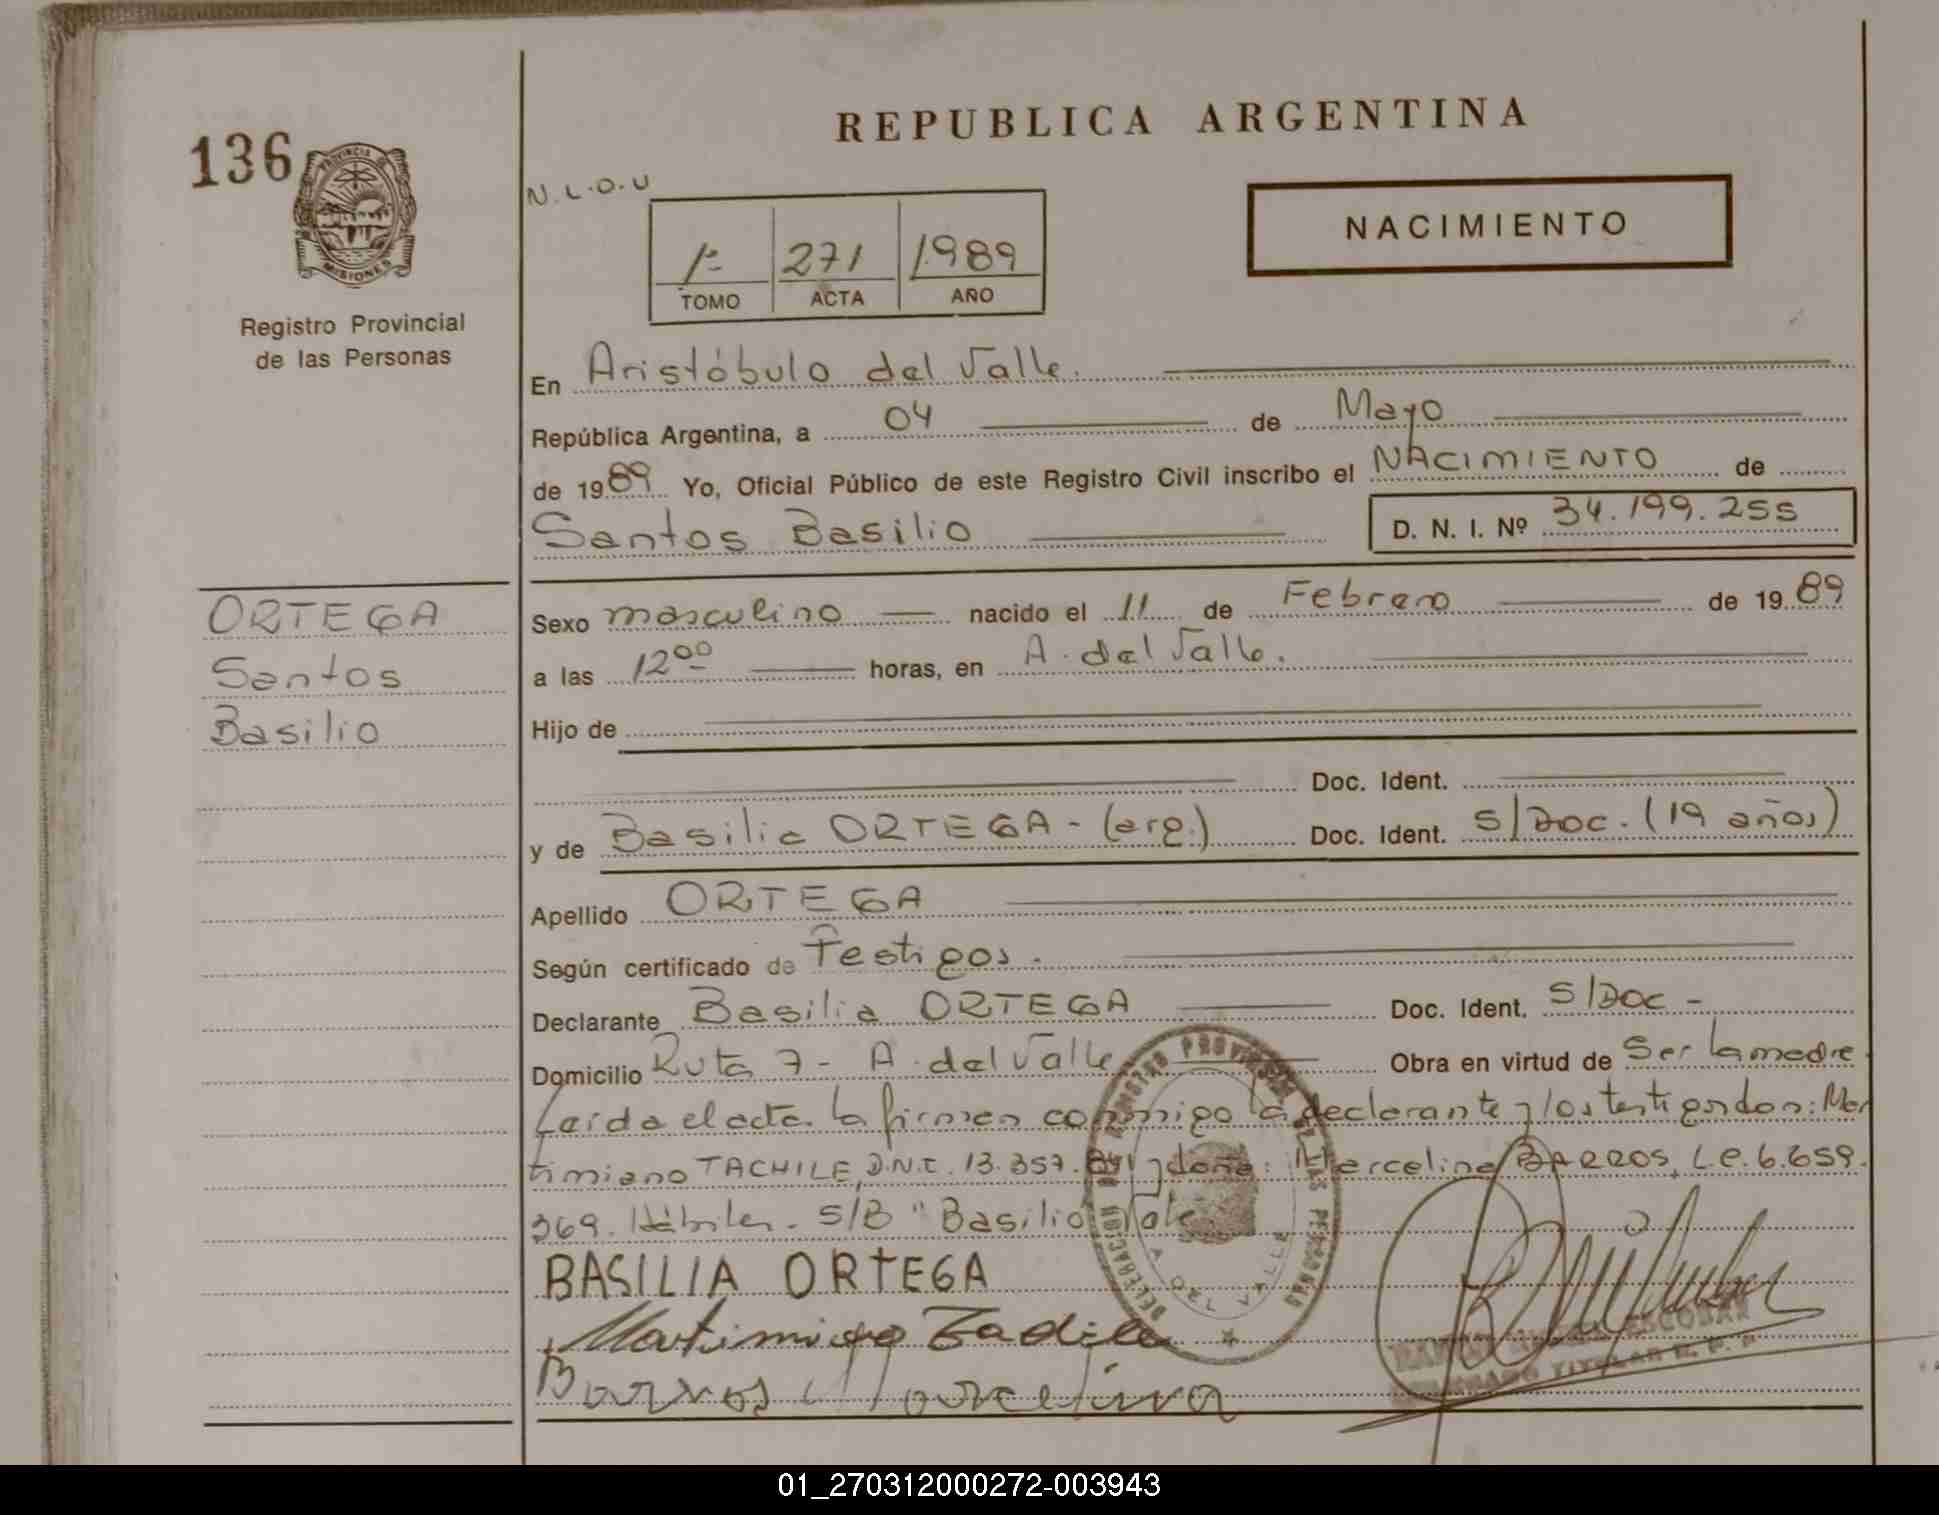 REPUBLICA ARGENTINA
136
PROVINCIA DE
MISIONES
Registro Provincial
de las Personas
N.L.O.U
NACIMIENTO
1º 271 1989
TOMO ACTA AÑO
En Aristóbulo del Valle.
República Argentina, a 04 de Mayo
de 1989 Yo, Oficial Público de este Registro Civil inscribo el NACIMIENTO de
Santos Basilio D. N. I. Nº 34.199.255
ORTEGA
Santos
Basilio
Sexo masculino nacido el 11 de Febrero de 1989
a las 12⁰⁰ horas, en A. del Valle.
Hijo de
Doc. Ident.
y de Basilia ORTEGA - (arg.) Doc. Ident. S/Doc. (19 años)
Apellido ORTEGA
Según certificado de Testigos.
Declarante Basilia ORTEGA Doc. Ident. S/Doc -
Domicilio Ruta 7 - A. del Valle Obra en virtud de Ser la madre.
Leída el acta la firman conmigo la declarante y los testigos don: Mar
timiano TACHILE, D.N.I. 13.357. y doña: Marcelina BARROS, L.e. 6.659.
369. Hábiles. S/B "Basilio" Vale
BASILIA ORTEGA
Barros Marcelina
DELEGACION DE REGISTRO PROVINCIAL DE LAS PERSONAS
A. DEL VALLE
ESCOBAR
TITULAR R. P. P
01_270312000272-003943